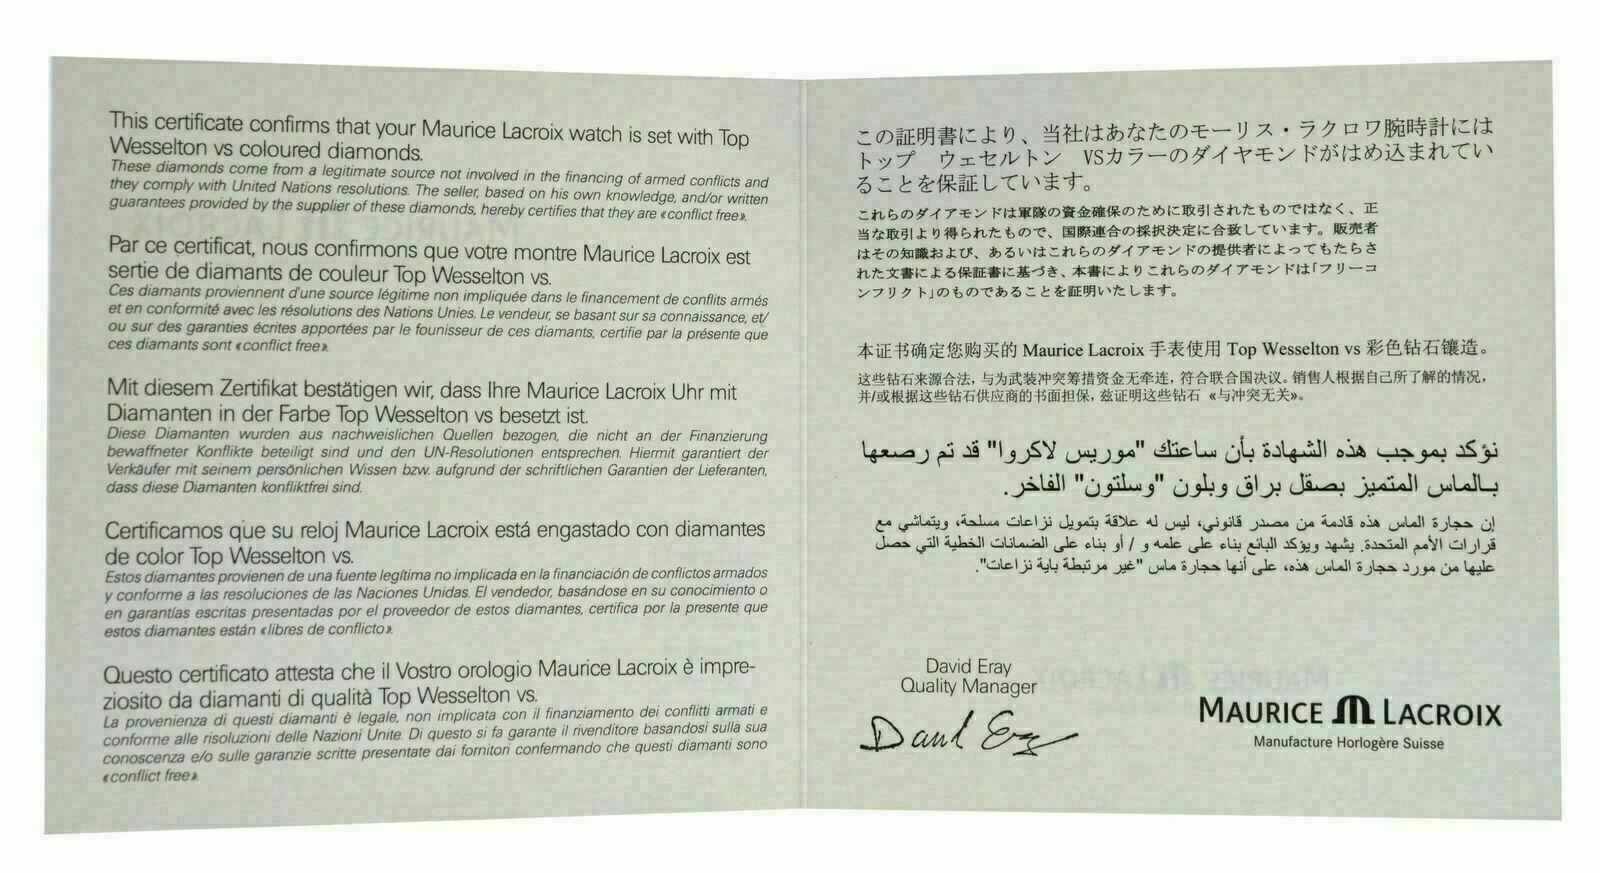 This certificate confirms that your Maurice Lacroix watch is set with Top
Wesselton vs coloured diamonds.
These diamonds come from a legitimate source not involved in the financing of armed conflicts and
they comply with United Nations resolutions. The seller, based on his own knowledge, and/or written
guarantees provided by the supplier of these diamonds, hereby certifies that they are «conflict free».
Par ce certificat, nous confirmons que votre montre Maurice Lacroix est
sertie de diamants de couleur Top Wesselton vs.
Ces diamants proviennent d'une source légitime non impliquée dans le financement de conflits armés
et en conformité avec les résolutions des Nations Unies. Le vendeur, se basant sur sa connaissance, et/
ou sur des garanties écrites apportées par le founisseur de ces diamants, certifie par la présente que
ces diamants sont «conflict free».
Mit diesem Zertifikat bestätigen wir, dass Ihre Maurice Lacroix Uhr mit
Diamanten in der Farbe Top Wesselton vs besetzt ist.
Diese Diamanten wurden aus nachweislichen Quellen bezogen, die nicht an der Finanzierung
bewaffneter Konflikte beteiligt sind und den UN-Resolutionen entsprechen. Hiermit garantiert der
Verkäufer mit seinem persönlichen Wissen bzw. aufgrund der schriftlichen Garantien der Lieferanten,
dass diese Diamanten konfliktfrei sind.
Certificamos que su reloj Maurice Lacroix está engastado con diamantes
de color Top Wesselton vs.
Estos diamantes provienen de una fuente legítima no implicada en la financiación de conflictos armados
y conforme a las resoluciones de las Naciones Unidas. El vendedor, basándose en su conocimiento o
en garantías escritas presentadas por el proveedor de estos diamantes, certifica por la presente que
estos diamantes están «libres de conflicto».
Questo certificato attesta che il Vostro orologio Maurice Lacroix è impre-
ziosito da diamanti di qualità Top Wesselton vs.
La provenienza di questi diamanti è legale, non implicata con il finanziamento dei conflitti armati e
conforme alle risoluzioni delle Nazioni Unite. Di questo si fa garante il rivenditore basandosi sulla sua
conoscenza e/o sulle garanzie scritte presentate dai fornitori confermando che questi diamanti sono
«conflict free».
この証明書により、当社はあなたのモーリス・ラクロワ腕時計には
トップ ウェセルトン VSカラーのダイヤモンドがはめ込まれてい
ることを保証しています。
これらのダイアモンドは軍隊の資金確保のために取引されたものではなく、正
当な取引より得られたもので、国際連合の採択決定に合致しています。販売者
はその知識および、あるいはこれらのダイアモンドの提供者によってもたらさ
れた文書による保証書に基づき、本書によりこれらのダイアモンドは「フリーコ
ンフリクト」のものであることを証明いたします。
本证书确定您购买的 Maurice Lacroix 手表使用 Top Wesselton vs 彩色钻石镶造。
这些钻石来源合法，与为武装冲突筹措资金无牵连，符合联合国决议。销售人根据自己所了解的情况，
并/或根据这些钻石供应商的书面担保，兹证明这些钻石 «与冲突无关»。
نؤكد بموجب هذه الشهادة بأن ساعتك "موريس لاكروا" قد تم رصعها
بالماس المتميز بصقل براق وبلون "وسلتون" الفاخر.
إن حجارة الماس هذه قادمة من مصدر قانوني، ليس له علاقة بتمويل نزاعات مسلحة، ويتماشي مع
قرارات الأمم المتحدة. يشهد ويؤكد البائع بناء على علمه و / أو بناء على الضمانات الخطية التي حصل
عليها من مورد حجارة الماس هذه، على أنها حجارة ماس "غير مرتبطة باية نزاعات".
David Eray
Quality Manager
David Eray
MAURICE LACROIX
Manufacture Horlogère Suisse